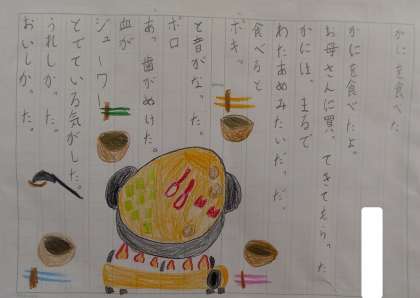 かにを食べた
かにを食べたよ。
お母さんに買ってきてもらった
かには、まるで
わたあめみたいだっだ。
食べると
ボキッ
と音がなった。
ポロ
あっ、歯がぬけた。
血が
ジューワー
とでている気がした。
うれしかった。
おいしかった。